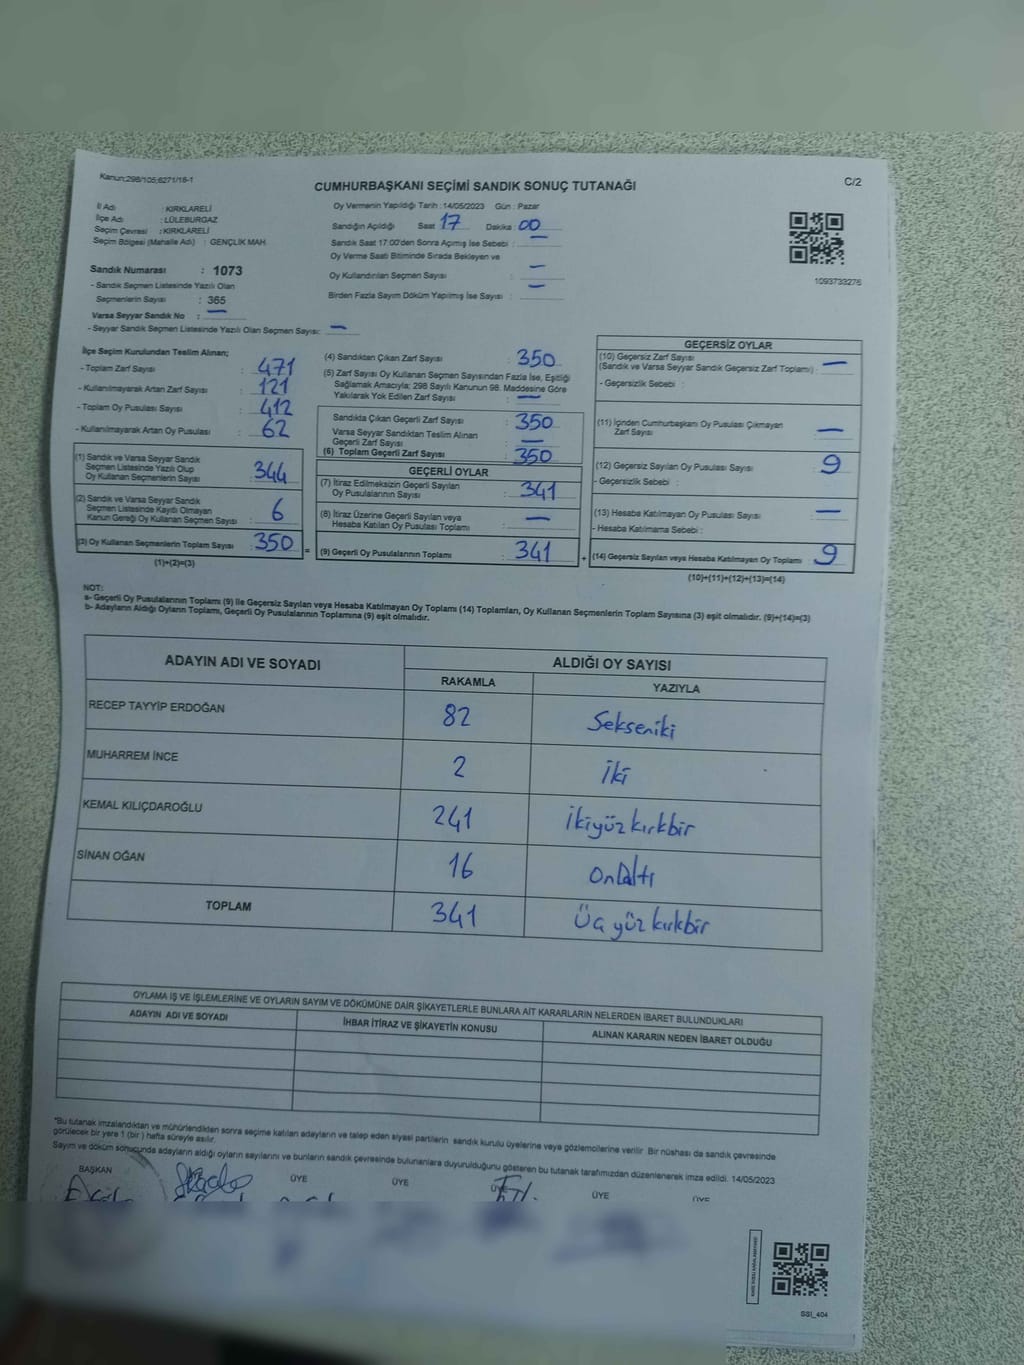 Kanun;298/105;6271/18-1
CUMHURBAŞKANI SEÇİMİ SANDIK SONUÇ TUTANAĞI
C/2
İl Adı : KIRKLARELİ
İlçe Adı : LÜLEBURGAZ
Seçim Çevresi : KIRKLARELİ
Seçim Bölgesi (Mahalle Adı) : GENÇLİK MAH.
Sandık Numarası : 1073
- Sandık Seçmen Listesinde Yazılı Olan
Seçmenlerin Sayısı : 365
Varsa Seyyar Sandık No : —
- Seyyar Sandık Seçmen Listesinde Yazılı Olan Seçmen Sayısı: —
Oy Vermenin Yapıldığı Tarih : 14/05/2023 Gün : Pazar
Sandığın Açıldığı Saat 17 Dakika : 00
Sandık Saat 17:00'den Sonra Açımış İse Sebebi : —
Oy Verme Saati Bitiminde Sırada Bekleyen ve
Oy Kullandırılan Seçmen Sayısı : —
Birden Fazla Sayım Döküm Yapılmış İse Sayısı : —
1093733276
İlçe Seçim Kurulundan Teslim Alınan;
- Toplam Zarf Sayısı : 471
- Kullanılmayarak Artan Zarf Sayısı : 121
- Toplam Oy Pusulası Sayısı : 412
- Kullanılmayarak Artan Oy Pusulası : 62
(1) Sandık ve Varsa Seyyar Sandık
Seçmen Listesinde Yazılı Olup
Oy Kullanan Seçmenlerin Sayısı : 344
(2) Sandık ve Varsa Seyyar Sandık
Seçmen Listesinde Kayıtlı Olmayan
Kanun Gereği Oy Kullanan Seçmen Sayısı : 6
(3) Oy Kullanan Seçmenlerin Toplam Sayısı : 350
(1)+(2)=(3)
(4) Sandıktan Çıkan Zarf Sayısı : 350
(5) Zarf Sayısı Oy Kullanan Seçmen Sayısından Fazla İse, Eşitliği
Sağlamak Amacıyla; 298 Sayılı Kanunun 98. Maddesine Göre
Yakılarak Yok Edilen Zarf Sayısı : —
Sandıkta Çıkan Geçerli Zarf Sayısı : 350
Varsa Seyyar Sandıktan Teslim Alınan
Geçerli Zarf Sayısı : —
(6) Toplam Geçerli Zarf Sayısı : 350
GEÇERLİ OYLAR
(7) İtiraz Edilmeksizin Geçerli Sayılan
Oy Pusulalarının Sayısı : 341
(8) İtiraz Üzerine Geçerli Sayılan veya
Hesaba Katılan Oy Pusulası Toplamı : —
= (9) Geçerli Oy Pusulalarının Toplamı : 341 +
GEÇERSİZ OYLAR
(10) Geçersiz Zarf Sayısı
(Sandık ve Varsa Seyyar Sandık Geçersiz Zarf Toplamı) : —
- Geçersizlik Sebebi :
(11) İçinden Cumhurbaşkanı Oy Pusulası Çıkmayan
Zarf Sayısı : —
(12) Geçersiz Sayılan Oy Pusulası Sayısı : 9
- Geçersizlik Sebebi :
(13) Hesaba Katılmayan Oy Pusulası Sayısı : —
- Hesaba Katılmama Sebebi :
(14) Geçersiz Sayılan veya Hesaba Katılmayan Oy Toplamı : 9
(10)+(11)+(12)+(13)=(14)
NOT:
a- Geçerli Oy Pusulalarının Toplamı (9) ile Geçersiz Sayılan veya Hesaba Katılmayan Oy Toplamı (14) Toplamları, Oy Kullanan Seçmenlerin Toplam Sayısına (3) eşit olmalıdır. (9)+(14)=(3)
b- Adayların Aldığı Oyların Toplamı, Geçerli Oy Pusulalarının Toplamına (9) eşit olmalıdır.
ADAYIN ADI VE SOYADI
ALDIĞI OY SAYISI
RAKAMLA YAZIYLA
RECEP TAYYİP ERDOĞAN 82 Sekseniki
MUHARREM İNCE 2 İki
KEMAL KILIÇDAROĞLU 241 ikiyüzkırkbir
SİNAN OĞAN 16 onaltı
TOPLAM 341 Üç yüz kırkbir
OYLAMA İŞ VE İŞLEMLERİNE VE OYLARIN SAYIM VE DÖKÜMÜNE DAİR ŞİKAYETLERLE BUNLARA AİT KARARLARIN NELERDEN İBARET BULUNDUKLARI
ADAYIN ADI VE SOYADI İHBAR İTİRAZ VE ŞİKAYETİN KONUSU ALINAN KARARIN NEDEN İBARET OLDUĞU
*Bu tutanak imzalandıktan ve mühürlendikten sonra seçime katılan adayların ve talep eden siyasi partilerin sandık kurulu üyelerine veya gözlemcilerine verilir. Bir nüshası da sandık çevresinde
görülecek bir yere 1 (bir ) hafta süreyle asılır.
Sayım ve döküm sonucunda adayların aldığı oyların sayılarını ve bunların sandık çevresinde bulunanlara duyurulduğunu gösteren bu tutanak tarafımızdan düzenlenerek imza edildi. 14/05/2023
BAŞKAN ÜYE ÜYE ÜYE ÜYE ÜYE
SSI_404